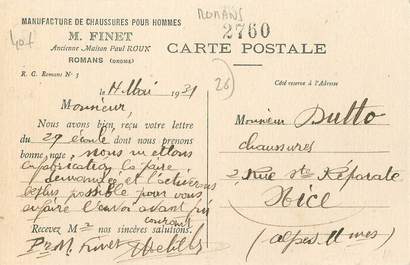 ROMANS
MANUFACTURE DE CHAUSSURES POUR HOMMES
M. FINET
Ancienne Maison Paul ROUX
ROMANS (DROME)
R. C. Romans N° 5
2760
CARTE POSTALE
Côté réservé à l'Adresse
le 4 Mai 1931
26
Monsieur
Nous avons bien reçu votre lettre
du 29 écoulé dont nous prenons
bonne note, nous mettons
en fabrication la paire
demandée et l'activerons
le plus possible pour vous
en faire l'envoi avant fin
courant
Recevez M nos sincères salutations.
M. Finet
Monsieur Dutto
chaussures
2 Rue Ste Réparate
Nice
(Alpes Mmes)